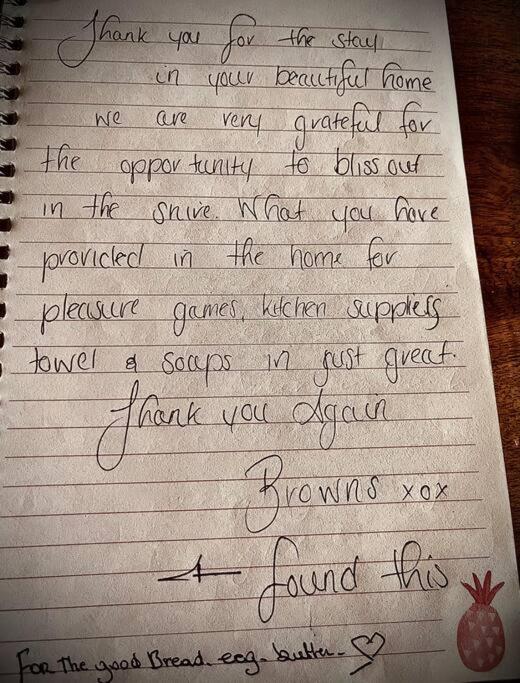 Thank you for the stay
in your beautiful home
we are very grateful for
the opportunity to bliss out
in the snive. What you have
provided in the home for
pleasure games, kitchen supplers
towel & soaps in just great.
Thank you Again
Browns xox
found this
For The good Bread. eeg. butter-